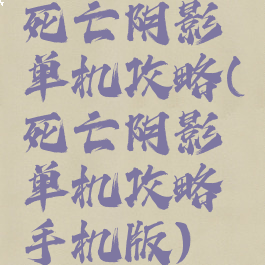 死亡阴影
单机攻略(
死亡阴影
单机攻略
手机版)